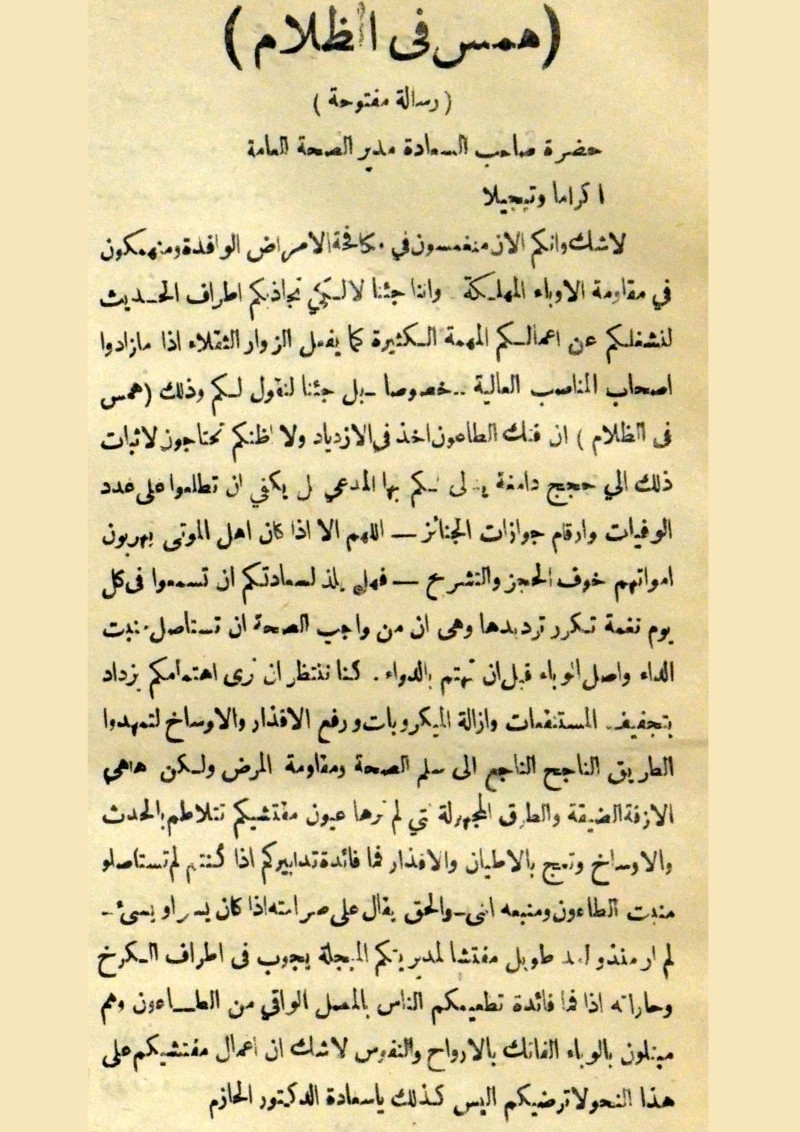 (همس فى الظلام)
( رسالة مفتوحة )
حضرة صاحب السعادة مدير الصحة العامة
اكراما وتبجيلا
لاشك وانكم الان منغمسون في مكافحة الامراض الوافدة ومنهمكون
في مقاومة الاوباء المهلكة . واننا جئنا لا لكي نجاذبكم اطراف الحديث
لنشغلكم عن اعمالكم المهمة الكثيرة كما يفعل الزوار الثقلاء اذا مازادوا
اصحاب المناصب العالية .. خصوصا ـ بل جئنا لنقول لكم وذلك (همس
فى الظلام ) ان فتك الطاعون اخذ في الازدياد ولا اظنكم تحتاجون لاثبات
ذلك الي حجج دامغة لكم بها المدعي بل يكفي ان تطلعوا على عدد
الوفيات وارقام جوازات الجنائز — اللهم الا اذا كان اهل الموتى يهربون
امواتهم خوف الحجز والتشرع — فهل يلذ لسعادتكم ان تسمعوا فى كل
يوم نغمة تكرر ترديدها وهى ان من واجب الصحة ان تستاصل منبت
الداء واصل الوباء قبل ان تهتم بالدواء . كنا ننتظر ان نرى اهتمامكم يزداد
بتجفيف المستنقعات وازالة الميكروبات ورفع الاقذار والاوساخ لتمهدوا
الطريق الناجح الناجع الى سلم الصحة ومقاومة المرض ولكن هاهي
الازقة الضيقة والطرق المجهولة التي لم ترها عيون مفتشيكم تتلاطم بالحدث
والاوساخ وتعج بالاطيان والاقذار فما فائدة تدابيركم اذا كنتم لم تستاصلو
منبت الطاعون ومنبعه انى ـ والحق يقال على صرامته اذا كان يسر او يسئ ـ
لم ار منذ امد طويل مفتشا لمديريتكم المبجلة يجوب فى اطراف الكرخ
وحاراته اذا فما فائدة تطعيمكم الناس بالمصل الواقي من الطاعون وهم
مبتلون بالوباء الفاتك بالارواح والنفوس لاشك ان اعمال مفتشيكم على
هذا النحو لا ترضيكم اليس كذلك ياسعادة الدكتور الحازم